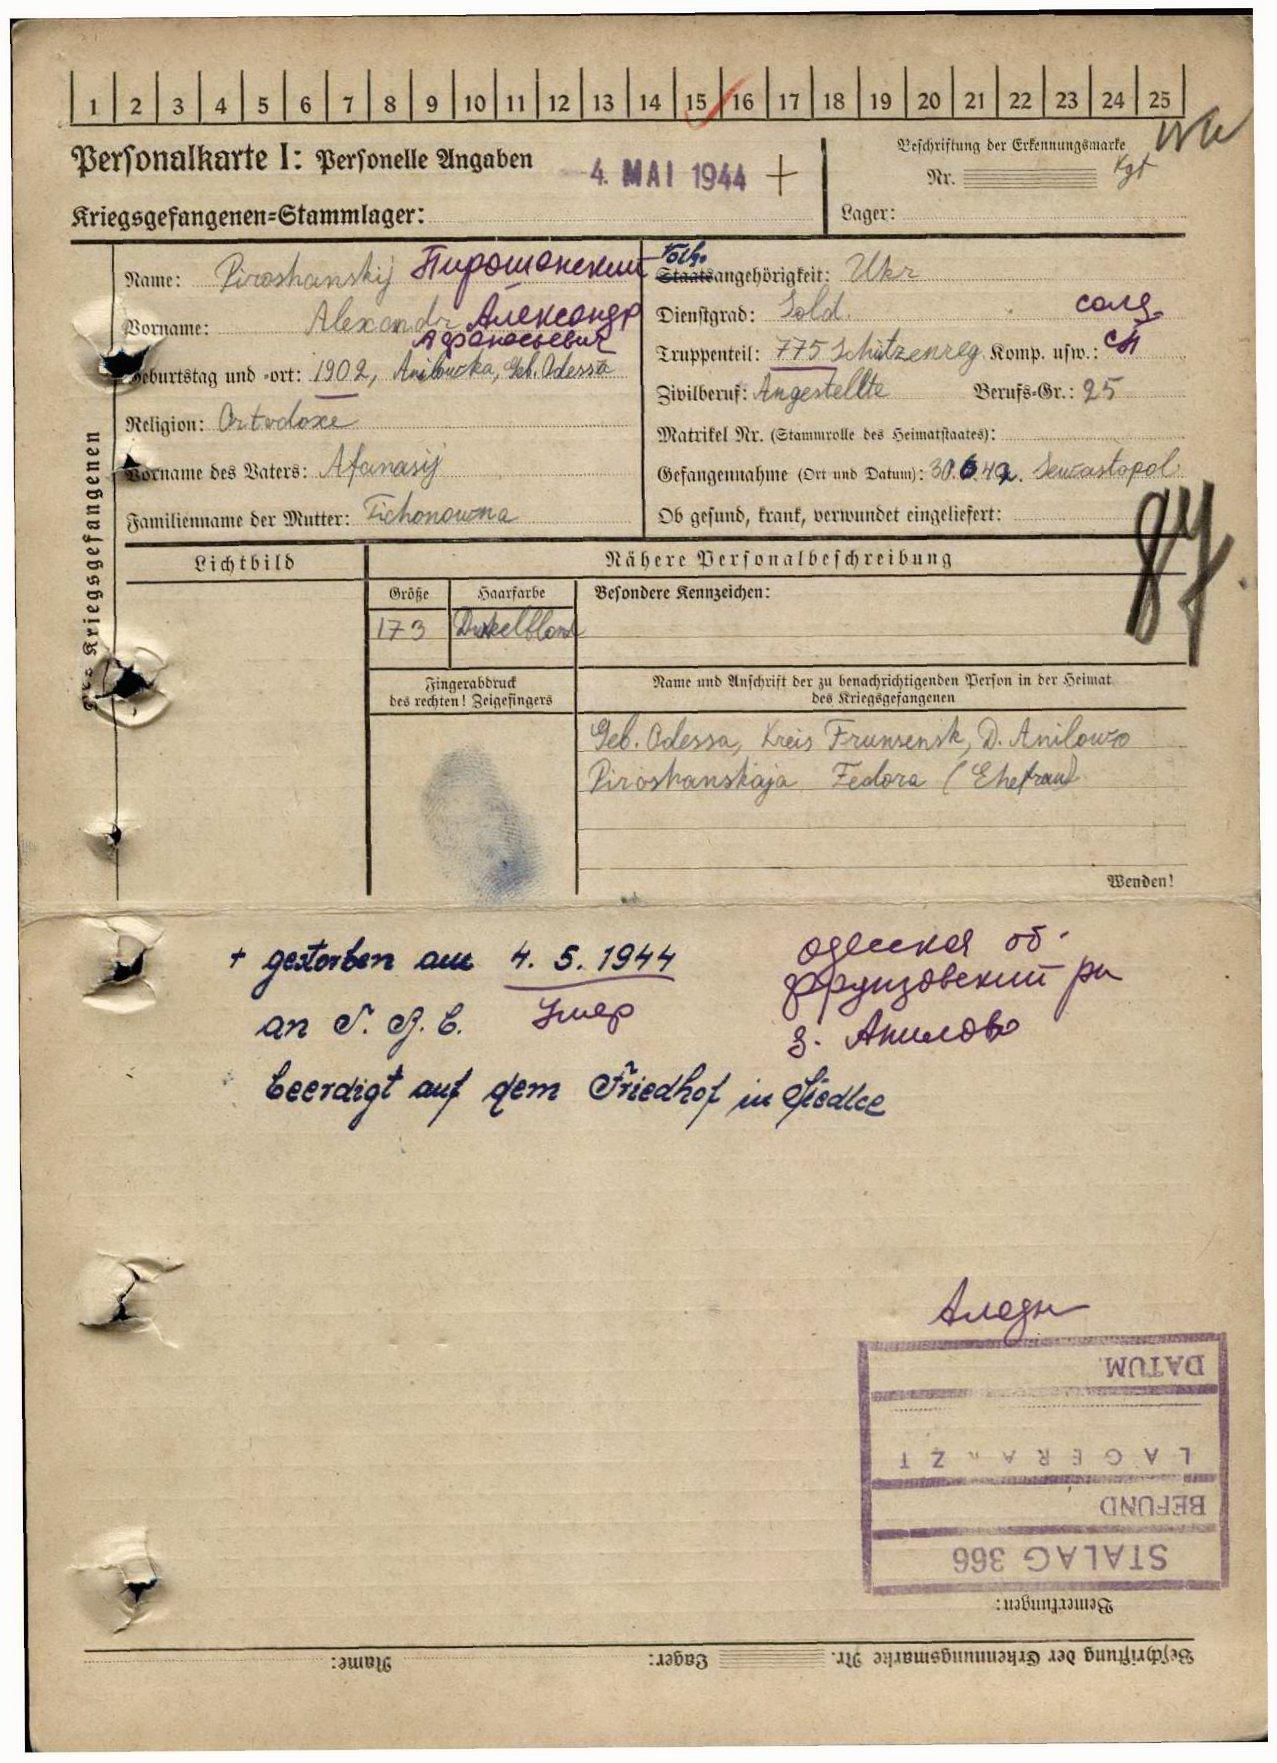 1 2 3 4 5 6 7 8 9 10 11 12 13 14 15 16 17 18 19 20 21 22 23 24 25
Personalkarte I: Personelle Angaben
4. MAI 1944 +
Beschriftung der Erkennungsmarke
Nr.
Kgf
Kriegsgefangenen=Stammlager:
Lager:
des Kriegsgefangenen
Name: Piroshanskij Пирошанский
Vorname: Alexandr Александр
Афанасьевич
Geburtstag und -ort: 1902, Anilowka, Geb. Odessa
Religion: Ortodoxe
Vorname des Vaters: Afanasij
Familienname der Mutter: Tichonowna
Volks
Staatsangehörigkeit: Ukr
Dienstgrad: Sold. солд.
Truppenteil: 775 Schützenreg. Komp. usw.: сп
Zivilberuf: Angestellte Berufs-Gr.: 25
Matrikel Nr. (Stammrolle des Heimatstaates):
Gefangennahme (Ort und Datum): 30.6.42. Sewastopol
Ob gesund, krank, verwundet eingeliefert:
84
Lichtbild
Nähere Personalbeschreibung
Größe Haarfarbe Besondere Kennzeichen:
173 Dukelblond
Fingerabdruck
des rechten! Zeigefingers
Name und Anschrift der zu benachrichtigenden Person in der Heimat
des Kriegsgefangenen
Geb. Odessa, Kreis Frunsensk, D. Anilowo
Piroshanskaja Fedora (Ehefrau)
Wenden!
+ gestorben am 4. 5. 1944
Умер
an T. B. C.
beerdigt auf dem Friedhof in Siedlce
одесская об.
Фрунзовский рн
д. Анилово
DATUM
LAGERARZT
BEFUND
STALAG 366
Bemerkungen:
Beschriftung der Erkennungsmarke Nr. Lager: Name: